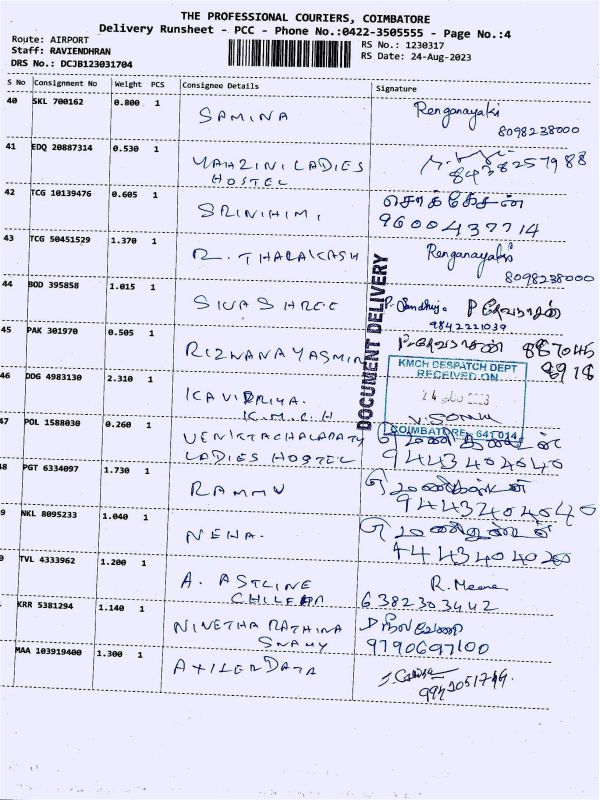 THE PROFESSIONAL COURIERS, COIMBATORE
Delivery Runsheet - PCC - Phone No.:0422-3505555 - Page No.:4
Route: AIRPORT
RS No.: 1230317
Staff: RAVIENDHRAN
RS Date: 24-Aug-2023
DRS No.: DCJB123031704
S No Consignment No Weight PCS Consignee Details Signature
40 SKL 700162 0.800 1 SAMINA Renganayaki
8098238000
41 EDQ 20887314 0.530 1 YAHZINI LADIES
HOSTEL 8438257988
42 TCG 10139476 0.605 1 SRINIHIMI சொக்கேசன்
9600437714
43 TCG 50451529 1.370 1 R. THARAKASH Renganayaki
8098238000
44 BOD 395858 1.015 1 SIVASHREE
9842221039
45 PAK 301970 0.505 1 RIZWANA YASMIN
DOCUMENT DELIVERY
KMCH DESPATCH DEPT
RECEIVED ON
COIMBATORE - 641 014
46 DDG 4983130 2.310 1 KAVIPRIYA.
K.M.C.H
47 POL 1588030 0.260 1
LADIES HOSTEL 9443404040
48 PGT 6334097 1.730 1 RAMMU
9443404040
9 NKL 8095233 1.040 1 NEHA.
TVL 4333962 1.200 1 A. ASTLINE R. Meena
6382303442
KRR 5381294 1.140 1 NIVETHA RATHINA
SWAMY 9790697100
MAA 103919400 1.300 1 AXILER DATA